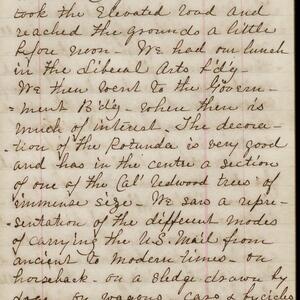 took the Elevated road and
reached the grounds a little
before noon - We had our lunch
in the Liberal Arts B'd'g -
We then went to the Govern-
-ment B'd'g - where there is
much of interest. The decora-
-tion of the Rotunda is very good
and has in the centre a section
of one of the Cal' redwood trees of
immense size. We saw a repre-
-sentation of the different modes
of carrying the U.S. Mail from
ancient to modern times - on
horseback - on a sledge drawn by
dogs - by wagons, cars & bicycles